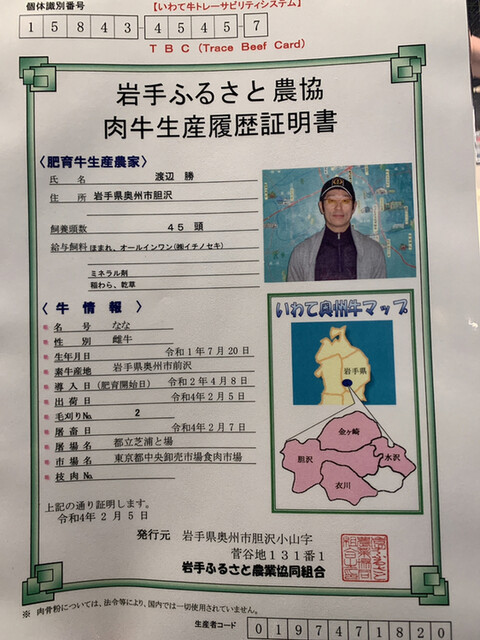 個体識別番号 【いわて牛トレーサビリティシステム】
15843-4545-7
TBC(Trace Beef Card)
岩手ふるさと農協
肉牛生産履歴証明書
〈肥育牛生産農家〉
氏名 渡辺 勝
住所 岩手県奥州市胆沢
飼養頭数 45 頭
給与飼料 ほまれ、オールインワン(㈱イチノセキ)
ミネラル剤
稲わら、乾草
〈牛情報〉
名号 なな
性別 雌牛
生年月日 令和1年7月20日
素牛産地 岩手県奥州市前沢
導入日(肥育開始日) 令和2年4月8日
出荷日 令和4年2月5日
毛刈りNo. 2
屠畜日 令和4年2月7日
屠場名 都立芝浦と場
市場名 東京都中央卸売市場食肉市場
枝肉No.
いわて奥州牛マップ
岩手県
金ヶ崎
胆沢
水沢
衣川
上記の通り証明します。
令和4年2月5日
発行元 岩手県奥州市胆沢小山字
菅谷地131番1
岩手ふるさと農業協同組合
※ 肉骨粉については、法令等により、国内では一切使用されていません。
生産者コード 0197471820